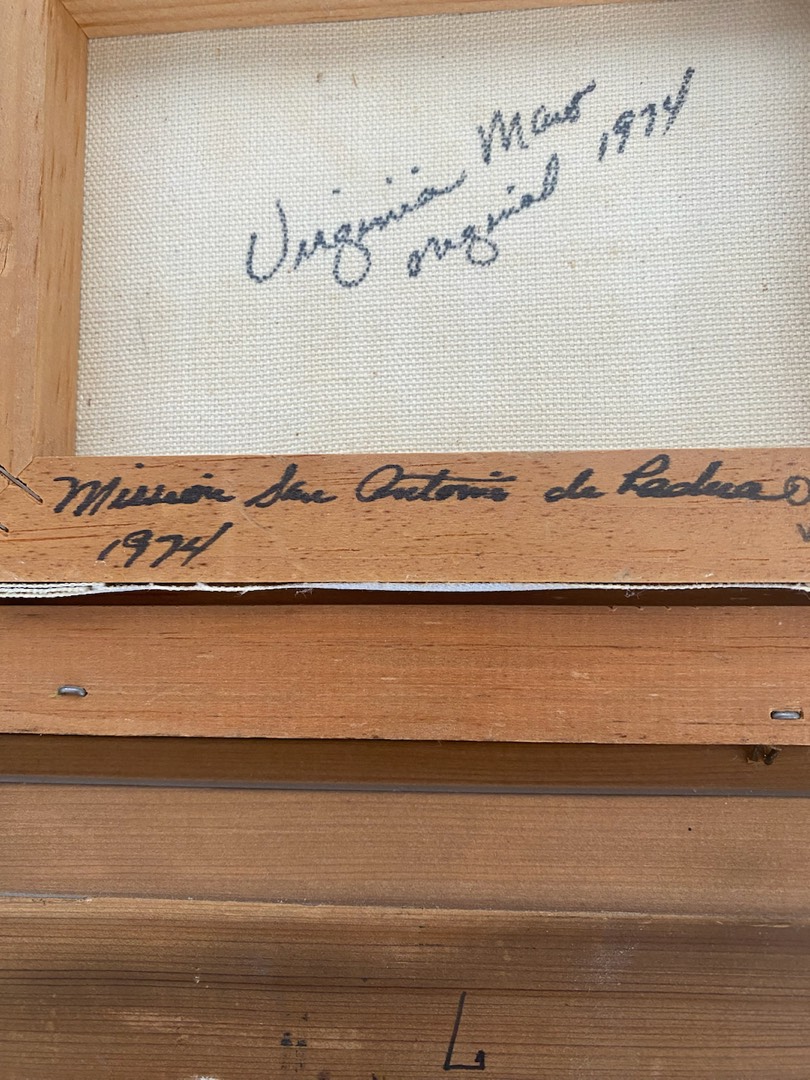 Virginia
original 1974
Mission San Antonio de Padua
1974
L